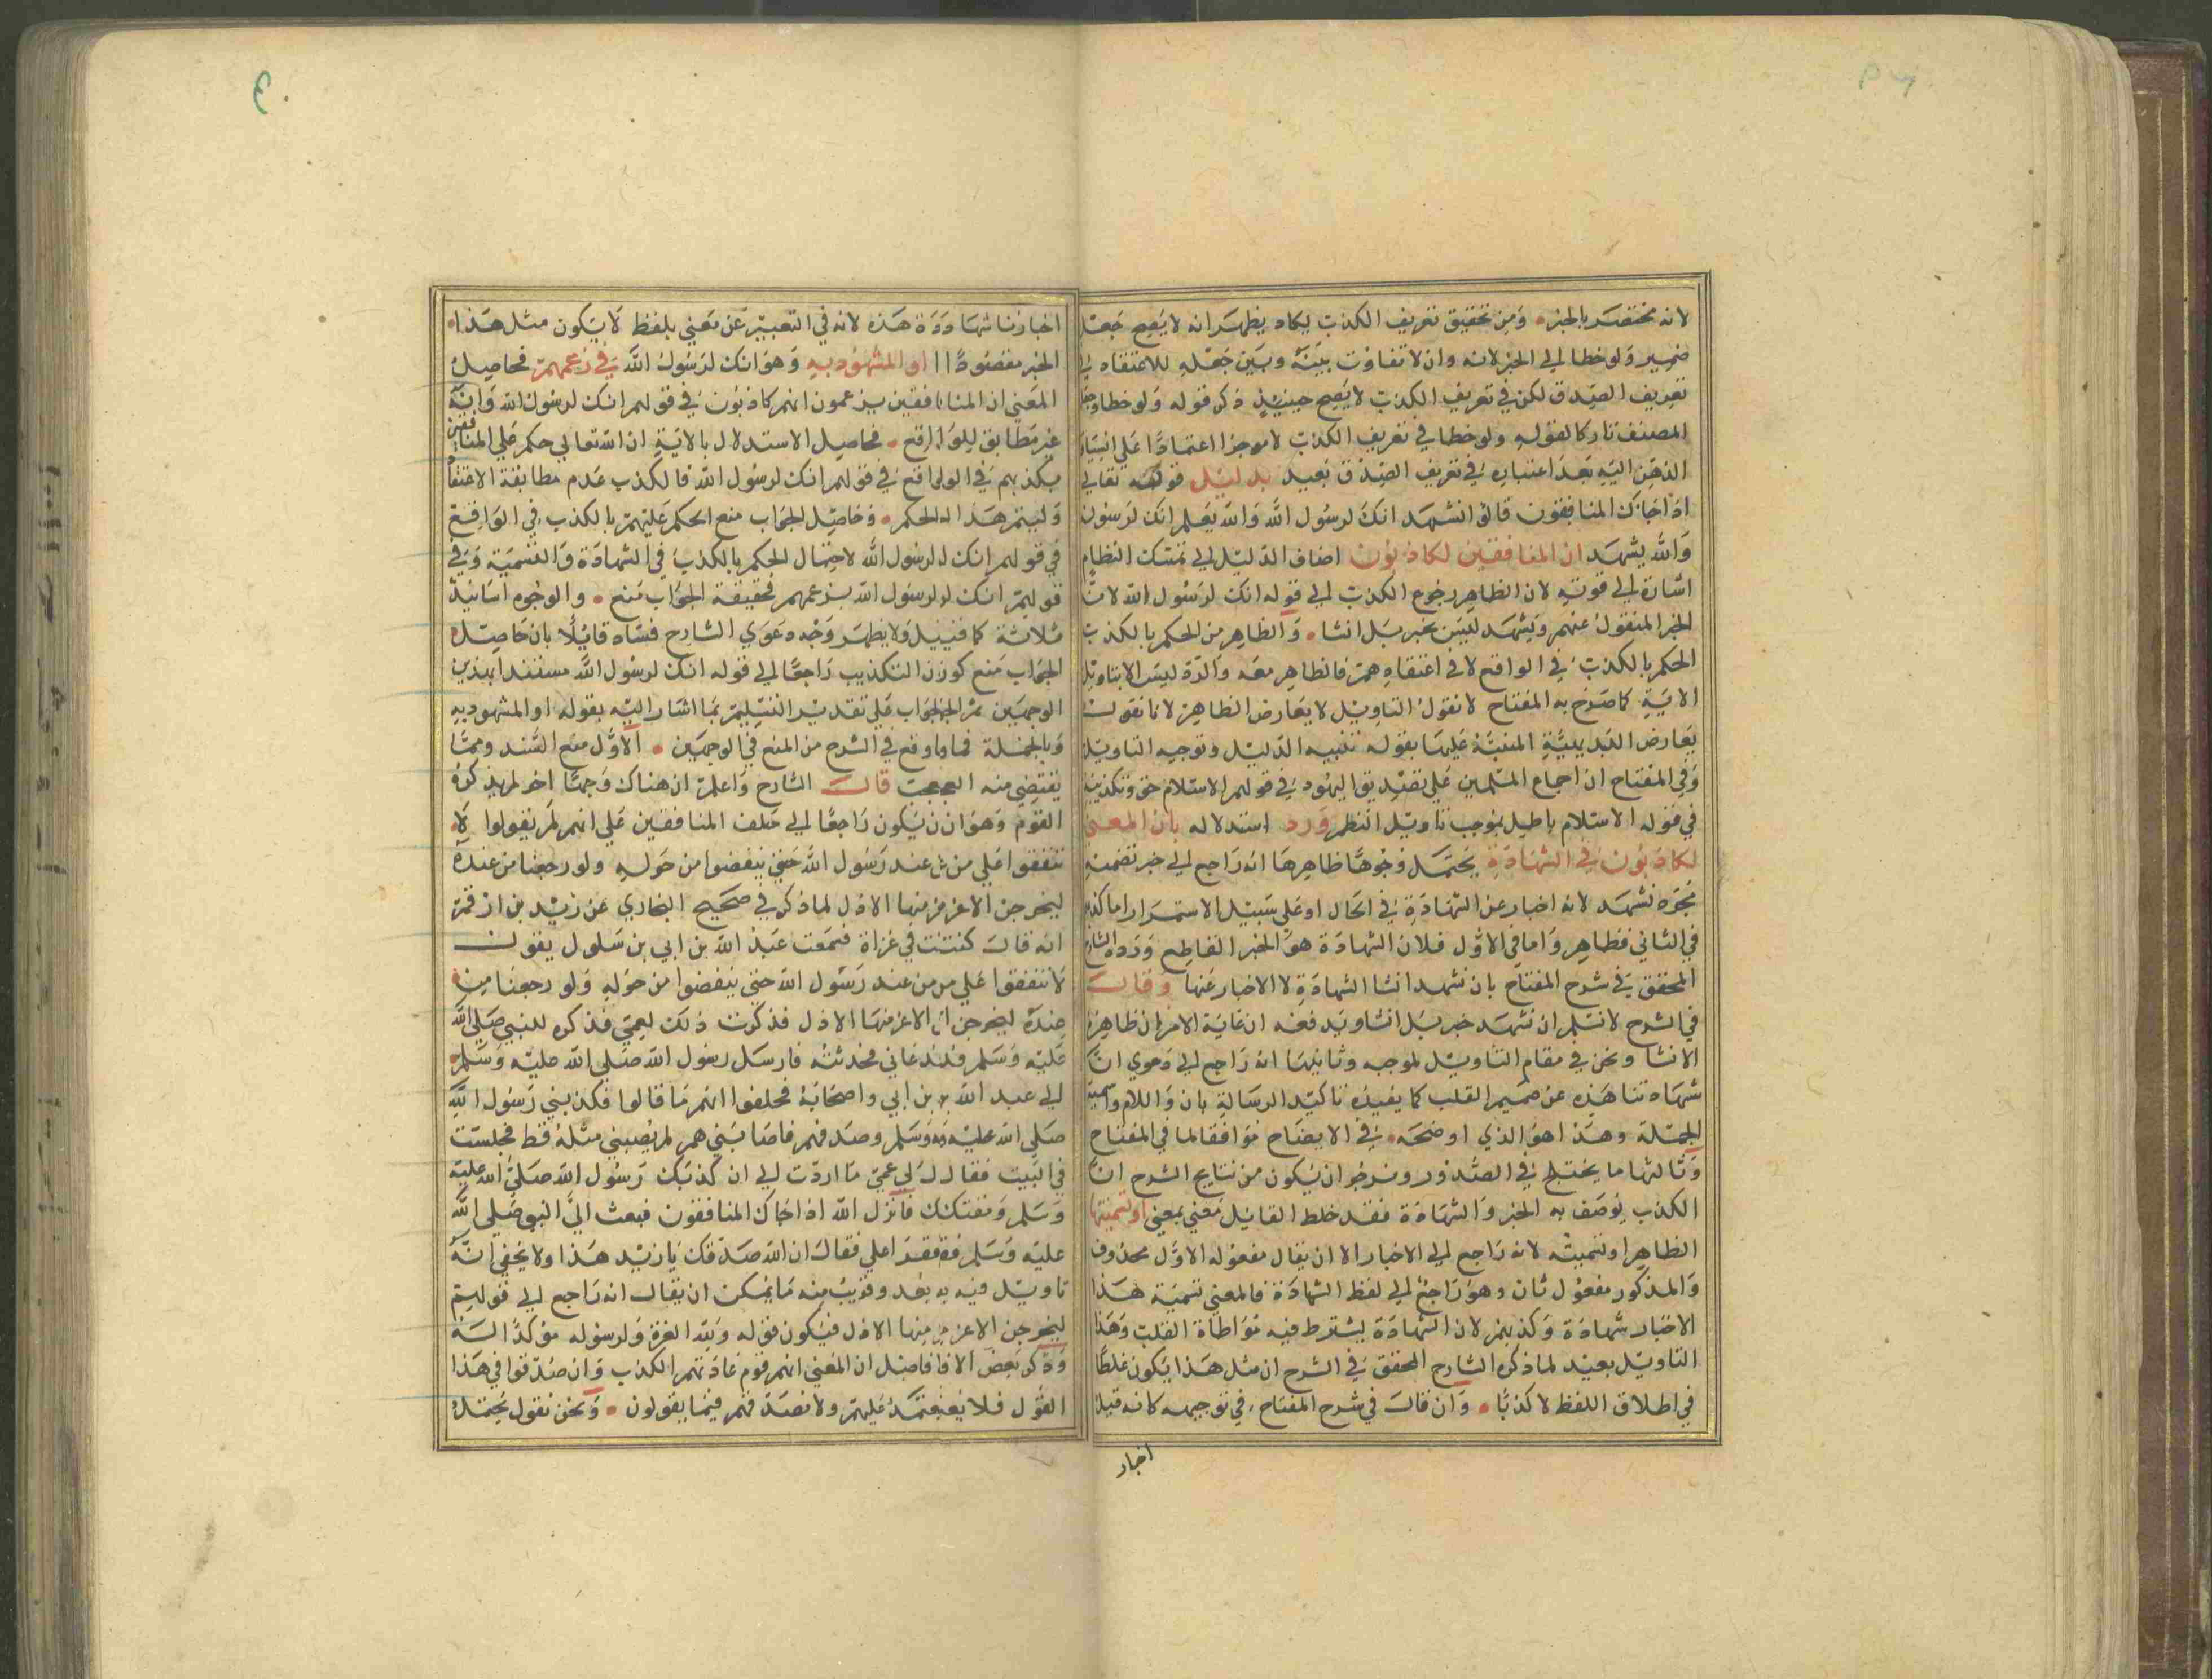 لانه مختصر بالخبر ٥ ومن تحقيق تعريف الكذب يكاد يظهر انه لا يصح جعل
ضمير ولو خطا الي الخبر لانه وان لا تفاوت بينه وبين جعله للاعتقاد في
تعريف الصدق لكن في تعريف الكذب لا يصح حينئذ ذكر قوله ولو خطا وجعل
المصنف تاركا لقوله ولو خطا في تعريف الكذب لا موجزا اعتمادا علي انسياق
الذهن اليه بعد اعتباره في تعريف الصدق بعيد بدليل قوله تعالي
اذا جاك المنافقون قالوا نشهد انك لرسول الله والله يعلم انك لرسوله
والله يشهد ان المنافقين لكاذبون اضاف الدليل الي تمسك النظام
اشارة الي قوته لان الظاهر رجوع الكذب الي قوله انك لرسول الله لانه
الخبر المنقول عنهم ويشهد ليس بخبر بل انشا ٥ والظاهر من الحكم بالكذب
الحكم بالكذب في الواقع لا في اعتقادهم فالظاهر معه والرد ليس الا بتاويل
الاية كما صرح به المفتاح لا نقول التاويل لا يعارض الظاهر لانا نقول
يعارض البديهية المنبه عليها بقوله تنبيه الدليل وتوجيه التاويل
وفي المفتاح ان اجماع المسلمين علي تصديق اليهود في قولهم الاسلام حق وتكذيبه
في قوله الاسلام باطل بموجب تاويل النظم ورد استدلاله بان المعني
لكاذبون في الشهادة يحتمل وجوها ظاهرها انه راجع الي خبر تضمنه
نشهد لانه اخبار عن الشهادة في الحال او علي سبيل الاستمرار اما كذبه
في الثاني فظاهر واما في الاول فلان الشهادة هو الخبر القاطع ورده الشارح
المحقق في شرح المفتاح بان نشهد انشا الشهادة لا الاخبار عنها وقال
في الشرح لا نسلم ان نشهد خبر بل انشا ويدفعه ان غاية الامر ان ظاهره
الانشا ونحن في مقام التاويل لموجبه وثانيها انه راجع الي دعوي ان
شهادتنا هذه عن صميم القلب كما يفيده تاكيد الرسالة بان واللام واسمية
الجملة وهذا هو الذي اوضحه في الايضاح موافقا لما في المفتاح
وثالثها ما يختلج في الصدور ونرجو ان يكون من نتايج الشرح ان
الكذب يوصف به الخبر والشهادة فقد خلط القايل معني بمعني او تسميتها
الظاهر او تسميته لانه راجع الي الاخبار الا ان يقال مفعوله الاول محذوف
والمذكور مفعول ثان وهو راجع الي لفظ الشهادة فالمعني تسمية هذا
الاخبار شهادة وكذبهم لان الشهادة يشترط فيه مواطاة القلب وهذا
التاويل بعيد لما ذكره الشارح المحقق في الشرح ان مثل هذا يكون غلطا
في اطلاق اللفظ لا كذبا ٥ وان قال في شرح المفتاح في توجيهه كانه قيل
اخبار
اخبارنا شهادة هذه لانه في التعبير عن معني بلفظ لا يكون مثل هذا
الخبر مقصودا او المشهود به وهو انك لرسول الله في زعمهم فحاصل
المعني ان المنافقين يزعمون انهم كاذبون في قولهم انك لرسول الله وانه
غير مطابق للواقع ٥ فحاصل الاستدلال بالاية ان الله تعالي حكم علي المنافقين
بكذبهم في الواقع في قولهم انك لرسول الله فالكذب عدم مطابقة الاعتقاد
وليتم هذا الحكم ٥ وحاصل الجواب منع الحكم عليهم بالكذب في الواقع
في قولهم انك لرسول الله لاحتمال الحكم بالكذب في الشهادة والتسمية وفي
قولهم انك لرسول الله بزعمهم فحقيقة الجواب منع ٥ والوجوه اسانيد
ثلاثة كما قيل ولا يظهر وجه دعوي الشارح فساه قايلا بان حاصل
الجواب منع كون التكذيب راجعا الي قوله انك لرسول الله مستندا بهذين
الوجهين ثم الجواب علي تقدير التسليم بما اشار اليه بقوله او المشهود به
وبالجملة فما وقع في الشرح من المنع في الوجهين ٥ الاول منع السند ومما
يقتضي منه العجب قال الشارح واعلم ان هناك وجها اخر لم يذكره
القوم وهو ان يكون راجعا الي حلف المنافقين علي انهم لم يقولوا لا
تنفقوا علي من عند رسول الله حتي ينفضوا من حوله ولو رجعنا من عنده
ليخرجن الاعز منها الاذل لما ذكر في صحيح البخاري عن زيد بن ارقم
انه قال كنت في غزاة فسمعت عبد الله بن ابي بن سلول يقول
لا تنفقوا علي من عند رسول الله حتي ينفضوا من حوله ولو رجعنا من
عنده ليخرجن الاعز منها الاذل فذكرت ذلك لعمي فذكره للنبي صلي الله
عليه وسلم فدعاني فحدثته فارسل رسول الله صلي الله عليه وسلم
الي عبد الله بن ابي واصحابه فحلفوا انهم ما قالوا فكذبني رسول الله
صلي الله عليه وسلم وصدقهم فاصابني هم لم يصبني مثله قط فجلست
في البيت فقال لي عمي ما اردت الي ان كذبك رسول الله صلي الله عليه
وسلم ومقتك فانزل الله اذا جاك المنافقون فبعث الي النبي صلي الله
عليه وسلم فقرا علي فقال ان الله صدقك يا زيد هذا ولا يخفي انه
تاويل فيه بعد وقريب منه ما يمكن ان يقال انه راجع الي قولهم
ليخرجن الاعز منها الاذل فيكون قوله ولله العزة ولرسوله مؤكدا له
وذكر بعض الافاضل ان المعني انهم قوم عادتهم الكذب وان صدقوا في هذا
القول فلا يعتمد عليهم ولا نصدقهم فيما يقولون ٥ ونحن نقول يحتمل